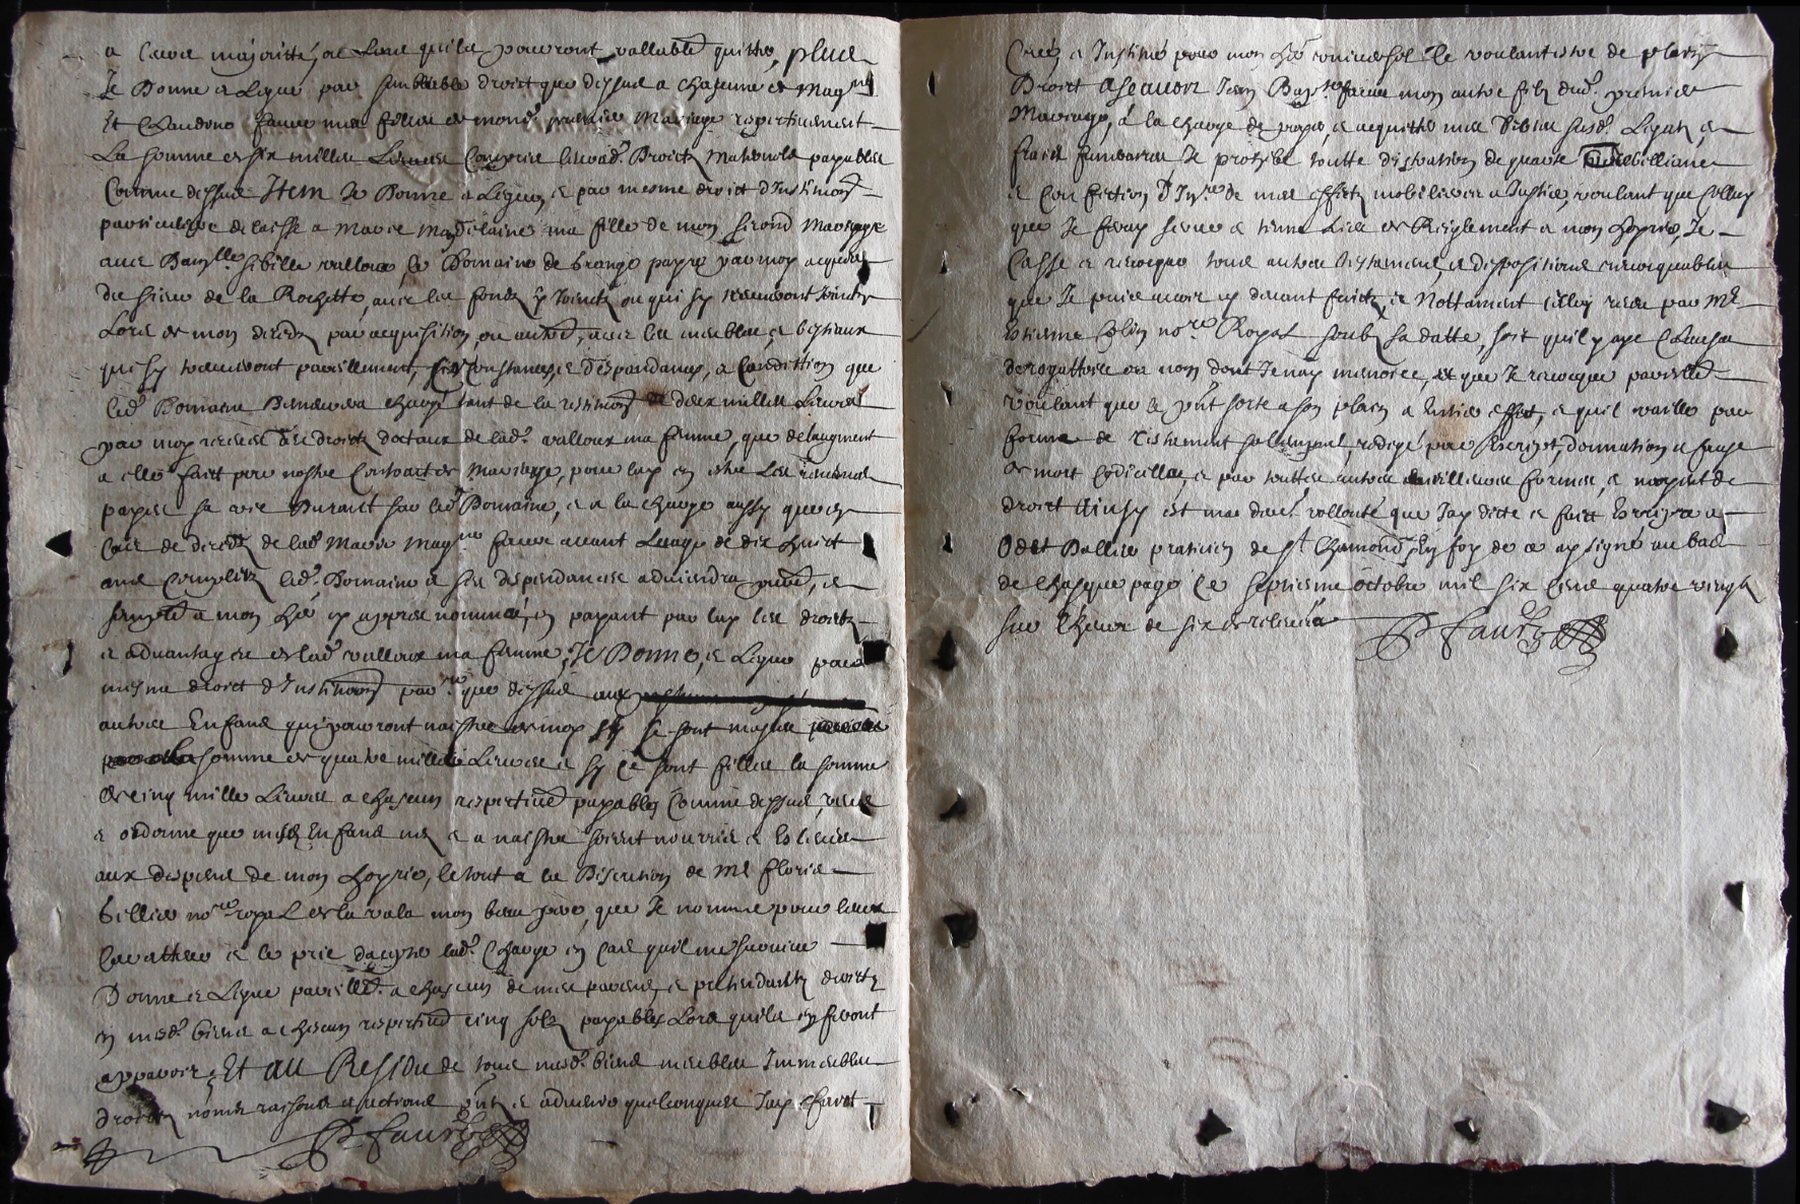 a leurs majoritté, et lors quils pourront vallablemt quitter, plus
Je Donne et Legue par semblable droict que dessus a chascune de Magne
Et Claudine faure mes filles de mond. premier Mariage respectivement
La somme de six milles Livres Comprise leursd. Droictz Maternels payables
Comme dessus Item Je Donne et Legue, et par mesme droict d'Institution
particuliere delaisse a Marie Magdelaine ma fille de mon second Mariage
avec Damlle Sibille valloux le Domaine de par moy acquis
du sieur de la Rochette, avec les fondz y Joinctz ou qui sy treuveront Joinctz
Lors de mon deces par acquisition ou autremt, avec les meubles, et bestiaux
qui sy treuveront pareillement, Circonstances, et despandances, a Condittion que
led. Domaine demeurera chargé tant de la restitution de deux milles Livres
par moy receues des droictz dotaux de lad. valloux ma femme, que de laugment
a elle faict par nostre Contract de Mariage, pour luy en estre Les revenus
payes sa vie Durant sur led. Domaine, et a la charge aussy que en
Cas de deces de lad. Marie Magne faure avant Leage de dix huict
ans Complets led. Domaine et ses despendances adviendra, et
a mon her. cy apres nommé, en payant par luy les droictz
et advantages de lad. valloux ma femme; Je Donne, et Legue par
mesme droict d'Institution parre que dessus aux
autres Enfans qui pourront naistre de moy sy se sont masles
somme de quatre milles Livres et sy ce sont filles la somme
de cinq mille Livres a chascun respectivemt payables Comme dessus, veux
et ordonne que mesd. Enfans nes et a naistre soient nourris et Esleves
aux despens de mon heritier, le tout a la Discretion de Me Floris
billiet nore royal de la vala mon beau pere, que Je nomme pour leur
Curatteur et le prie daccepter lad. Charge en Cas quil me survive
Donne et Legue pareillemt a chascun de mes parens, et pretendantz droictz
en mesd. biens a chascun respectivemt cinq solz payables Lors quils en feront
apparoir; Et au Residu de tous mesd. biens meubles Immeubles
droictz noms raisons et actions pntz et advenir quelconques Jay
P Faure
Créé, et Institué pour mon her. universel Le voulant estre de plein
Droict Ascavoir Jean Bapte faure mon autre filz dud. premier
Mariage, a la charge de payer, et acquitter mes debtes susd. Legatz, et
fraix funeraires Je prohibe toutte distration de quarte trebellianne
et Confection D'Inre de mes effectz mobiliers a Justice, voulant que Celluy
que Je feray serve et tienne Lieu de Reiglement a mon heritier, Je
Casse et revocque tous autres testaments, et dispositions revocquables
que Je puis avoir cy devant faictz, et Nottament celluy receu par Me
Estienne Colin nore Royal soubz sa datte, soit quil y aye Clause
derogattoire ou non dont Je nay memoire, et que Je revocque pareillemt
voulant que le pnt sorte a son plain et Entier effect, et quil vaille par
forme de testament solempnel, redigé par Escript, donnation a cause
de mort Codicille, et par touttes autres meilleures formes, et moyens de
droict Ainsy est ma derre vollonté que Jay dicté et faict Escripre a
Odet Dallier praticien de St Chamond, En foy de ce ay signé au bas
de chasque page Le septieme octobre mil six Cens quatre vingtz
sur L'heure de six de relevée
P Faure